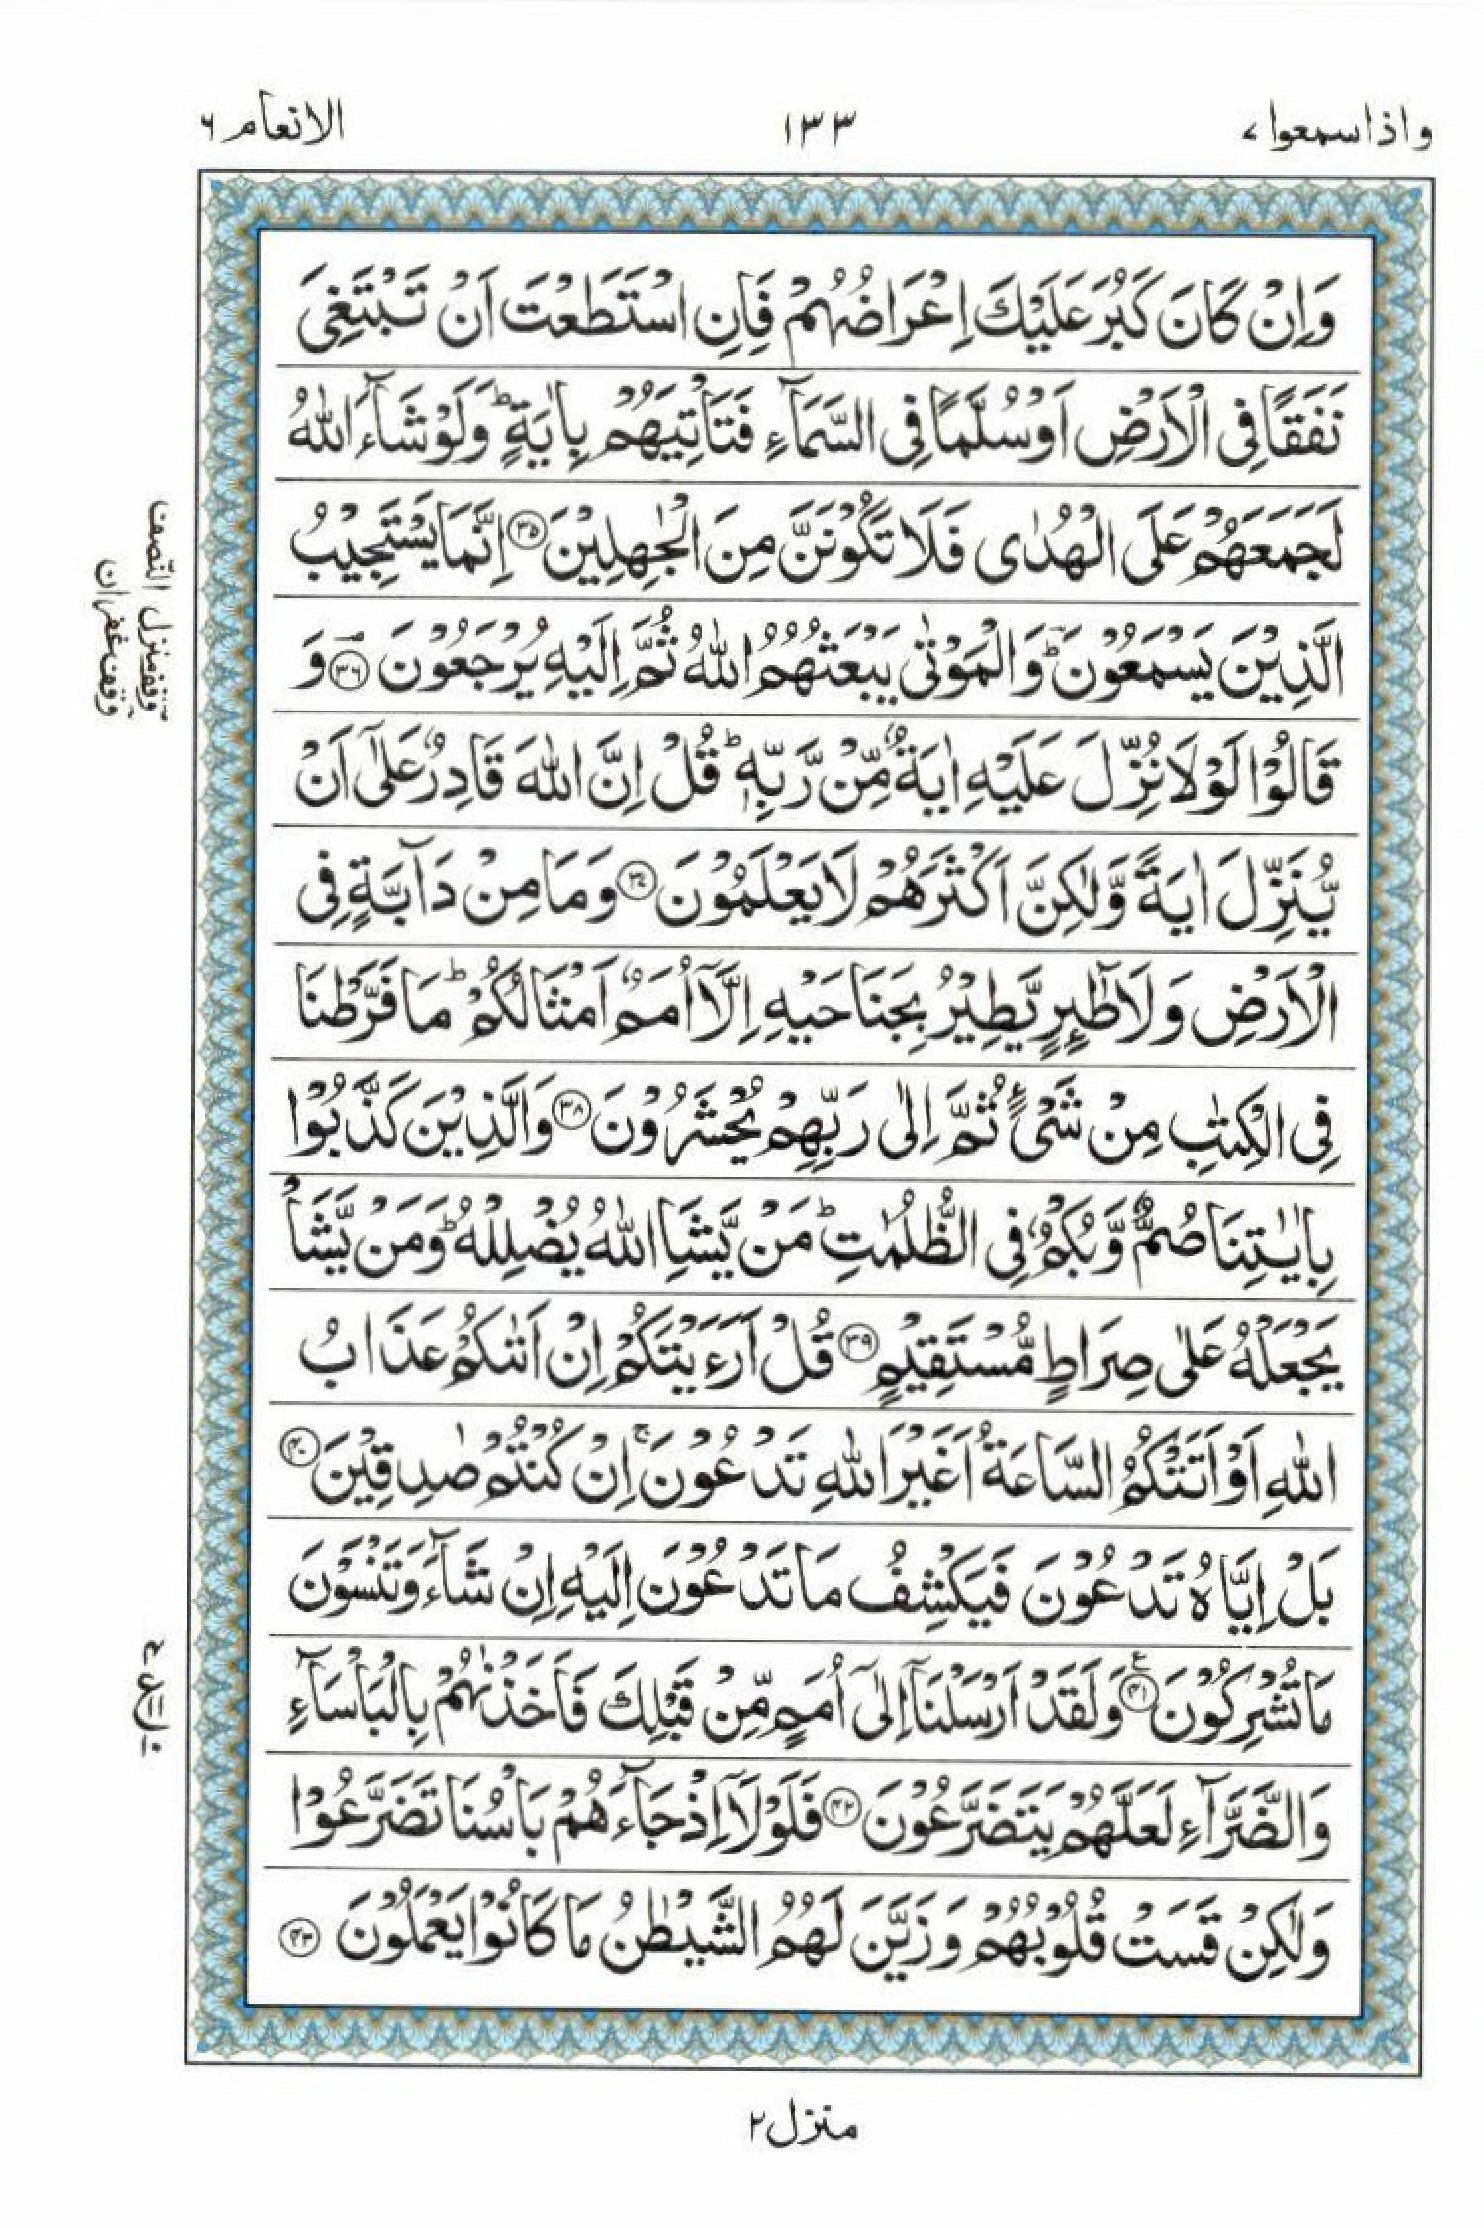 واذاسمعوا ٧
١٣٣
الانعام ٦
وَاِنْ كَانَ كَبُرَ عَلَيْكَ اِعْرَاضُهُمْ فَاِنِ اسْتَطَعْتَ اَنْ تَبْتَغِیَ
نَفَقًا فِی الْاَرْضِ اَوْ سُلَّمًا فِی السَّمَآءِ فَتَاْتِيَهُمْ بِاٰيَةٍ ؕ وَلَوْ شَآءَ اللّٰهُ
لَجَمَعَهُمْ عَلَی الْهُدٰی فَلَا تَكُوْنَنَّ مِنَ الْجٰهِلِيْنَ ﴿٣٥﴾ اِنَّمَا يَسْتَجِيْبُ
الَّذِيْنَ يَسْمَعُوْنَ ؕ وَالْمَوْتٰی يَبْعَثُهُمُ اللّٰهُ ثُمَّ اِلَيْهِ يُرْجَعُوْنَ ﴿٣٦﴾ وَ
قَالُوْا لَوْلَا نُزِّلَ عَلَيْهِ اٰيَةٌ مِّنْ رَّبِّهٖ ؕ قُلْ اِنَّ اللّٰهَ قَادِرٌ عَلٰۤی اَنْ
يُّنَزِّلَ اٰيَةً وَّلٰكِنَّ اَكْثَرَهُمْ لَا يَعْلَمُوْنَ ﴿٣٧﴾ وَمَا مِنْ دَآبَّةٍ فِی
الْاَرْضِ وَلَا طٰٓئِرٍ يَّطِيْرُ بِجَنَاحَيْهِ اِلَّاۤ اُمَمٌ اَمْثَالُكُمْ ؕ مَا فَرَّطْنَا
فِی الْكِتٰبِ مِنْ شَیْءٍ ثُمَّ اِلٰی رَبِّهِمْ يُحْشَرُوْنَ ﴿٣٨﴾ وَالَّذِيْنَ كَذَّبُوْا
بِاٰيٰتِنَا صُمٌّ وَّبُكْمٌ فِی الظُّلُمٰتِ ؕ مَنْ يَّشَاِ اللّٰهُ يُضْلِلْهُ ؕ وَمَنْ يَّشَاْ
يَجْعَلْهُ عَلٰی صِرَاطٍ مُّسْتَقِيْمٍ ﴿٣٩﴾ قُلْ اَرَءَيْتَكُمْ اِنْ اَتٰىكُمْ عَذَابُ
اللّٰهِ اَوْ اَتَتْكُمُ السَّاعَةُ اَغَيْرَ اللّٰهِ تَدْعُوْنَ ۚ اِنْ كُنْتُمْ صٰدِقِيْنَ ﴿٤٠﴾
بَلْ اِيَّاهُ تَدْعُوْنَ فَيَكْشِفُ مَا تَدْعُوْنَ اِلَيْهِ اِنْ شَآءَ وَتَنْسَوْنَ
مَا تُشْرِكُوْنَ ﴿٤١﴾ وَلَقَدْ اَرْسَلْنَاۤ اِلٰۤی اُمَمٍ مِّنْ قَبْلِكَ فَاَخَذْنٰهُمْ بِالْبَاْسَآءِ
وَالضَّرَّآءِ لَعَلَّهُمْ يَتَضَرَّعُوْنَ ﴿٤٢﴾ فَلَوْلَاۤ اِذْ جَآءَهُمْ بَاْسُنَا تَضَرَّعُوْا
وَلٰكِنْ قَسَتْ قُلُوْبُهُمْ وَزَيَّنَ لَهُمُ الشَّيْطٰنُ مَا كَانُوْا يَعْمَلُوْنَ ﴿٤٣﴾
النّصف
وقف منزل
وقف غفران
منزل ٢